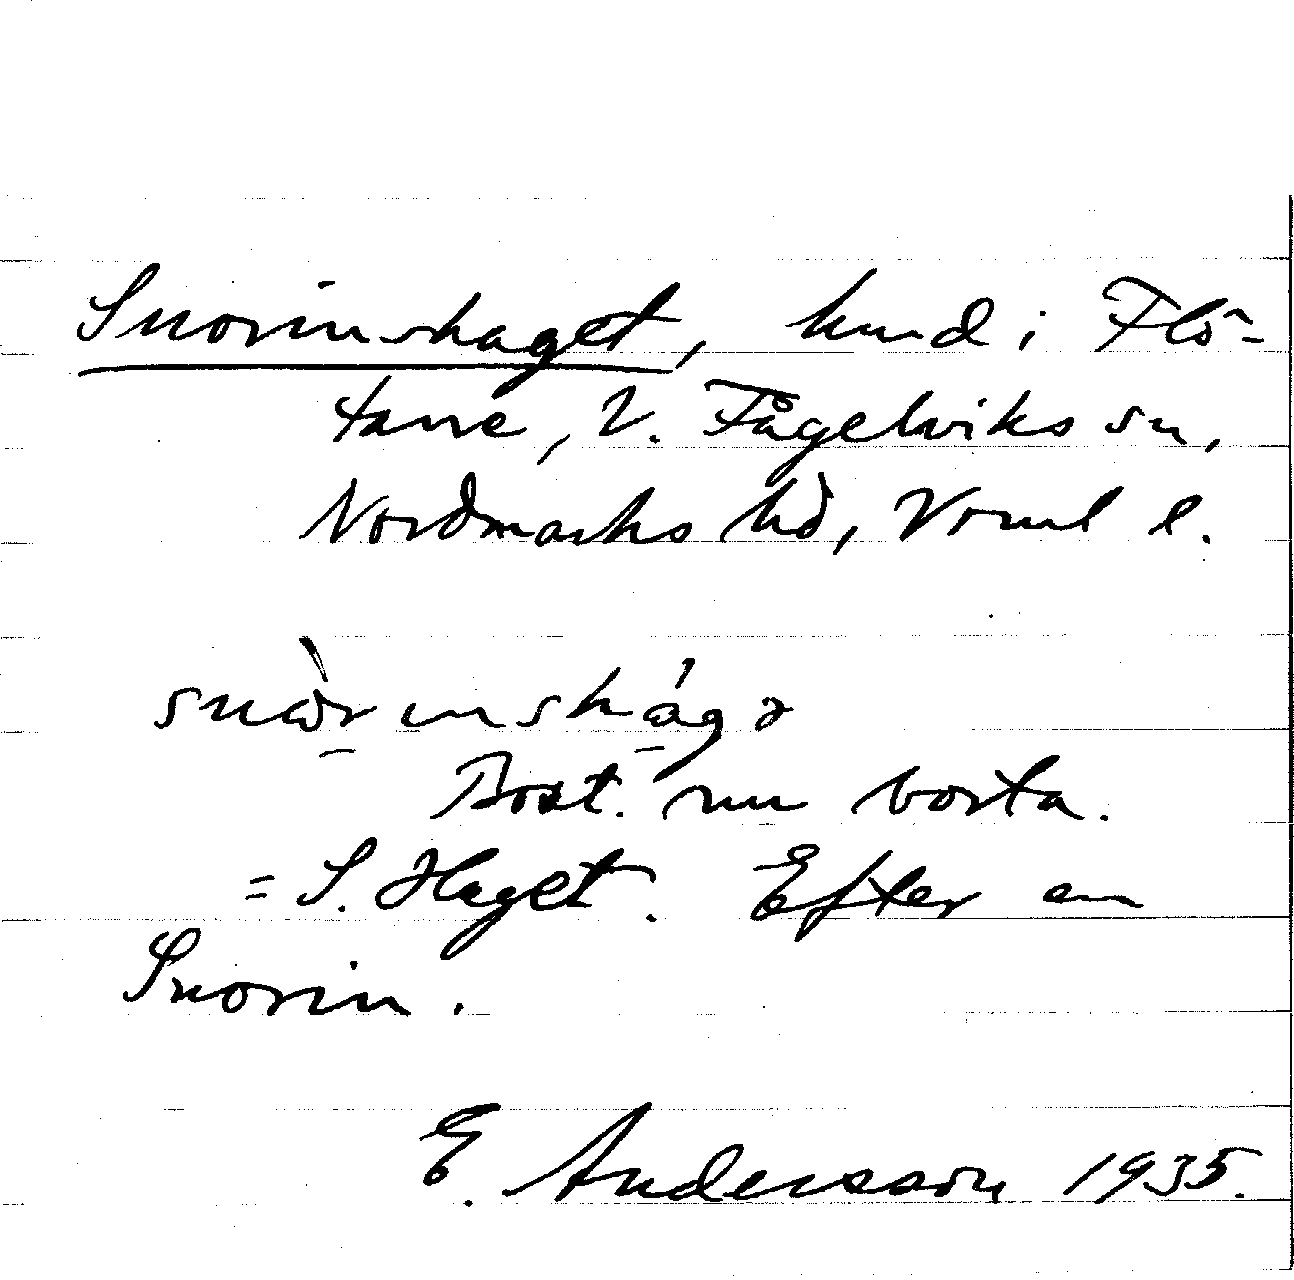 Snorinshaget, hmd i Flö-
tane, V. Fågelviks sn,
Nordmarks hd, Vrml l.
Bost. nu borta.
= S. Haget. Efter en
Snorin.
E. Andersson 1935.